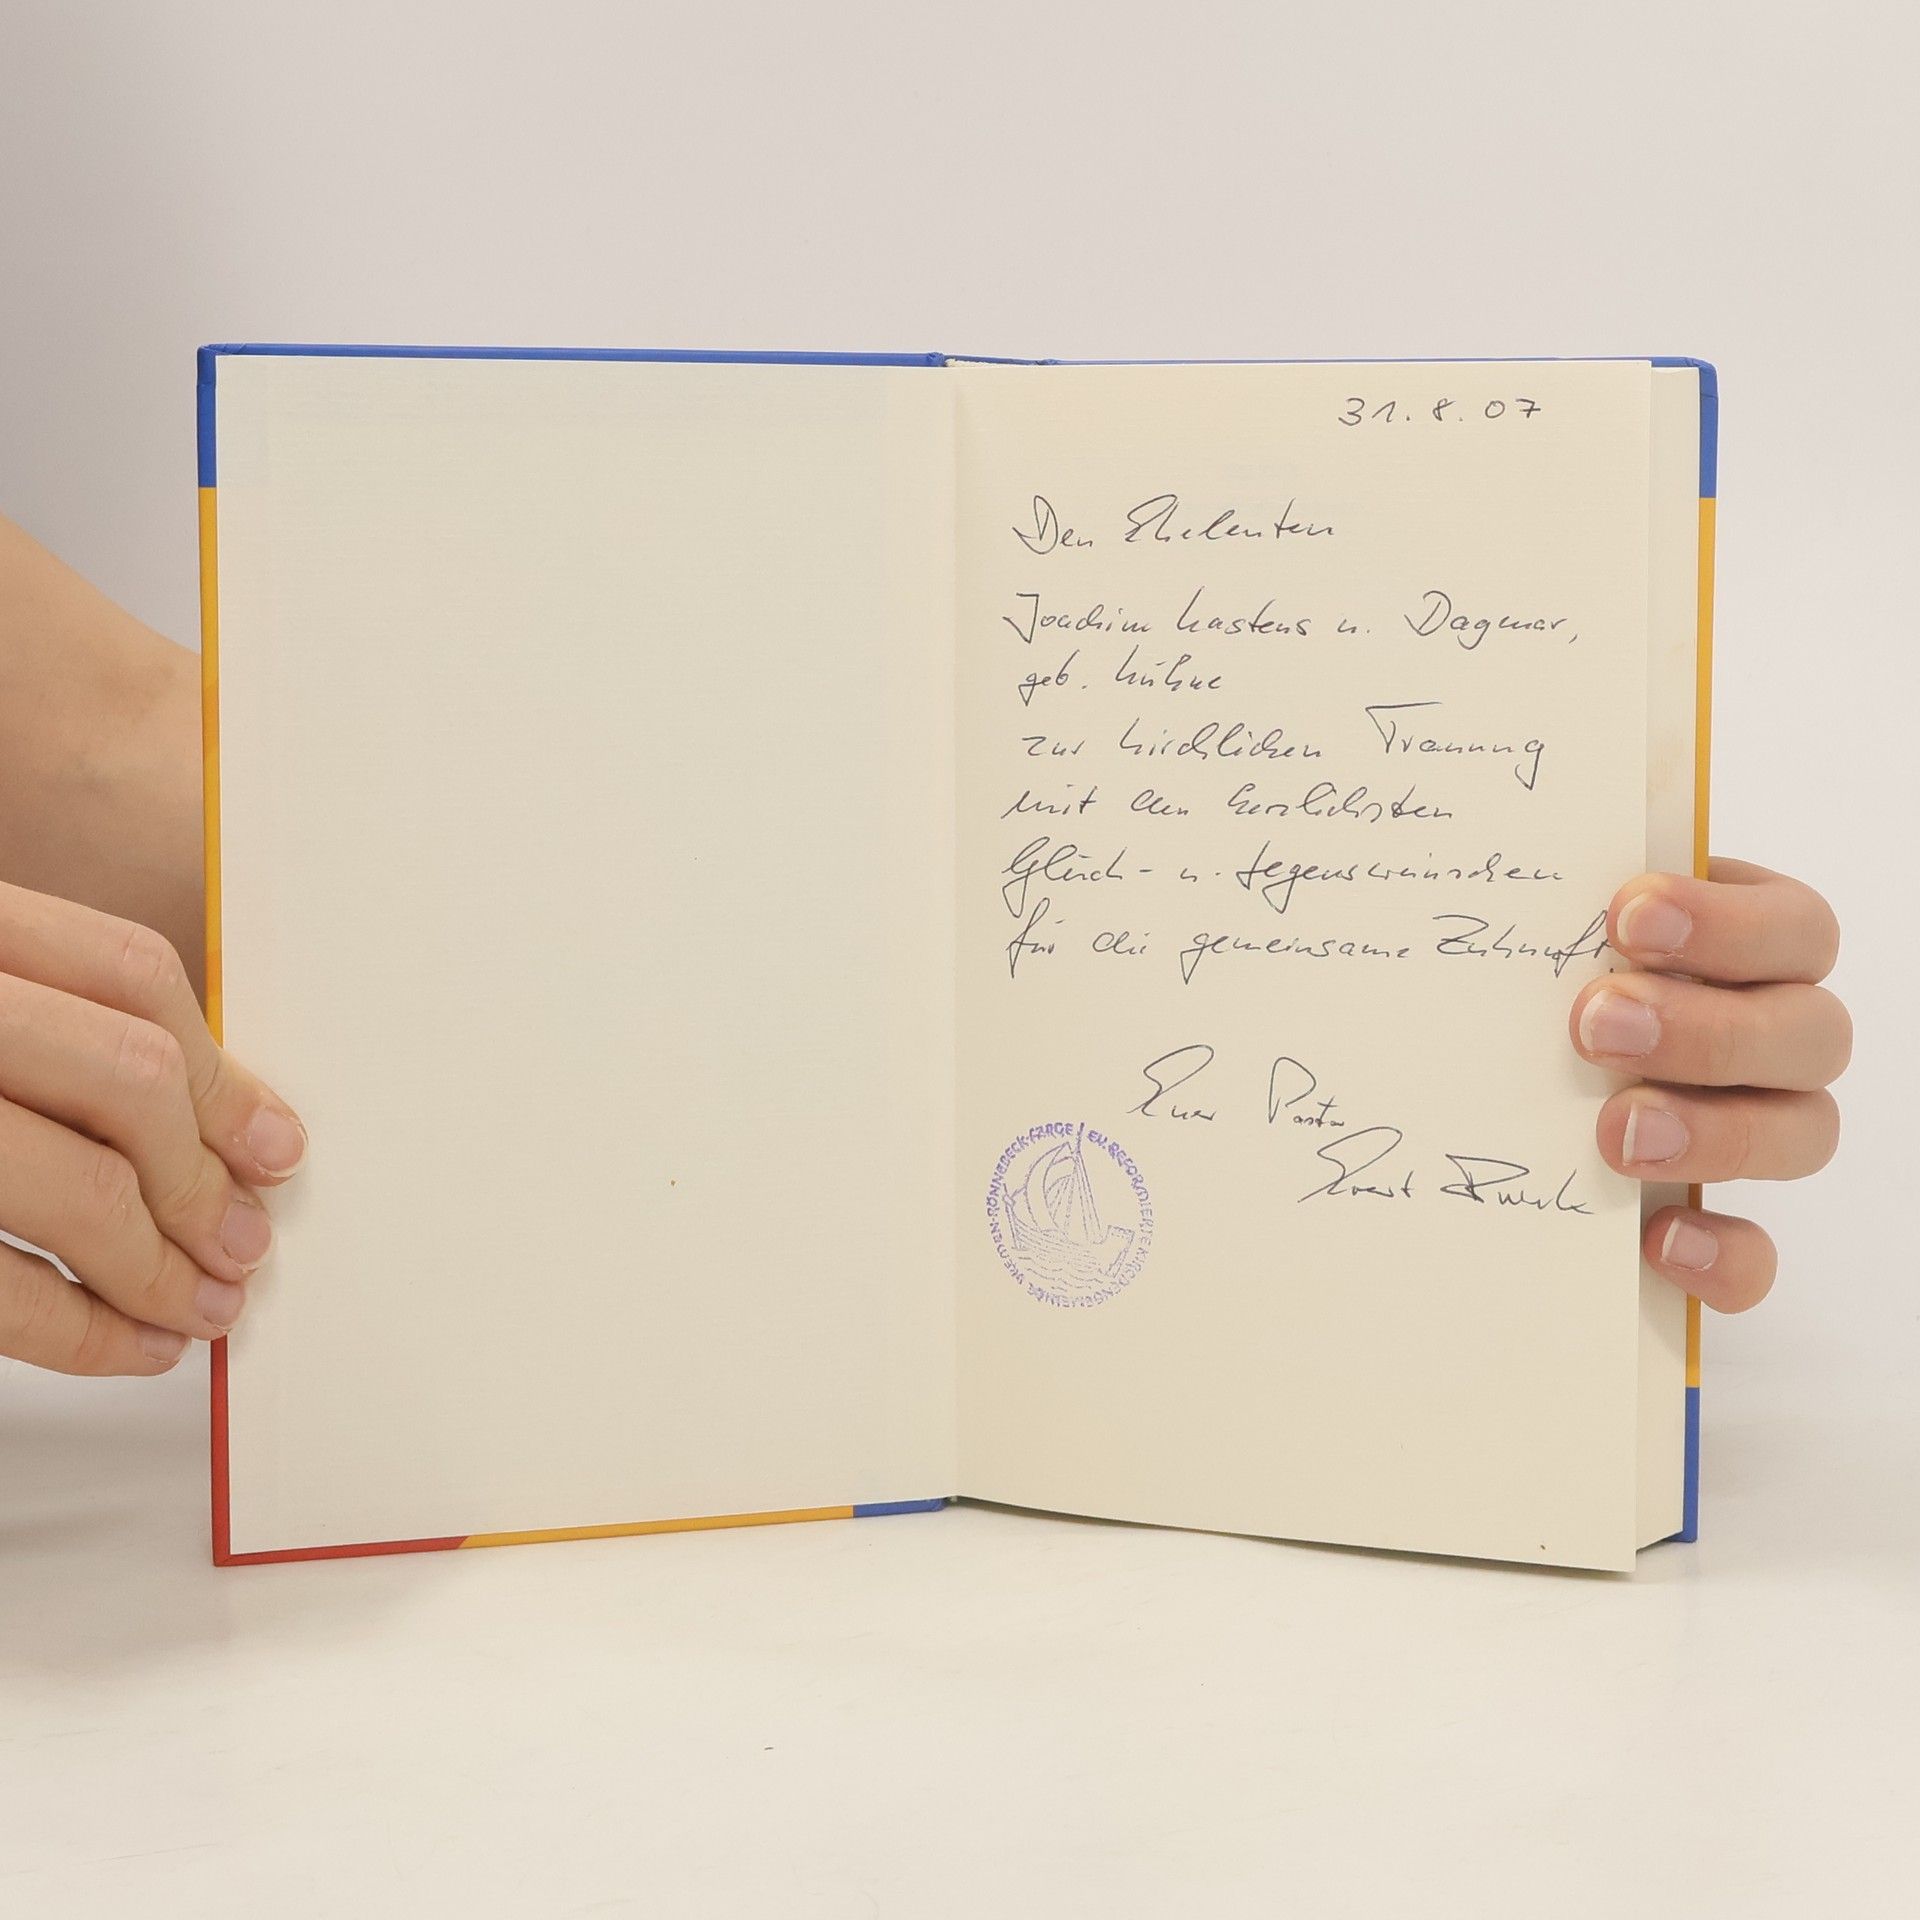 31.8.07
Den Eheleuten
Joachim Kastens u. Dagmar,
geb. Kühne
zur kirchlichen Trauung
mit den herzlichsten
Glück- u. Segenswünschen
für die gemeinsame Zukunft.
Euer Pastor
Evert
BREMEN-RÖNNEBECK-FARGE / EV. REFORMIERTE KIRCHENGEMEINDE